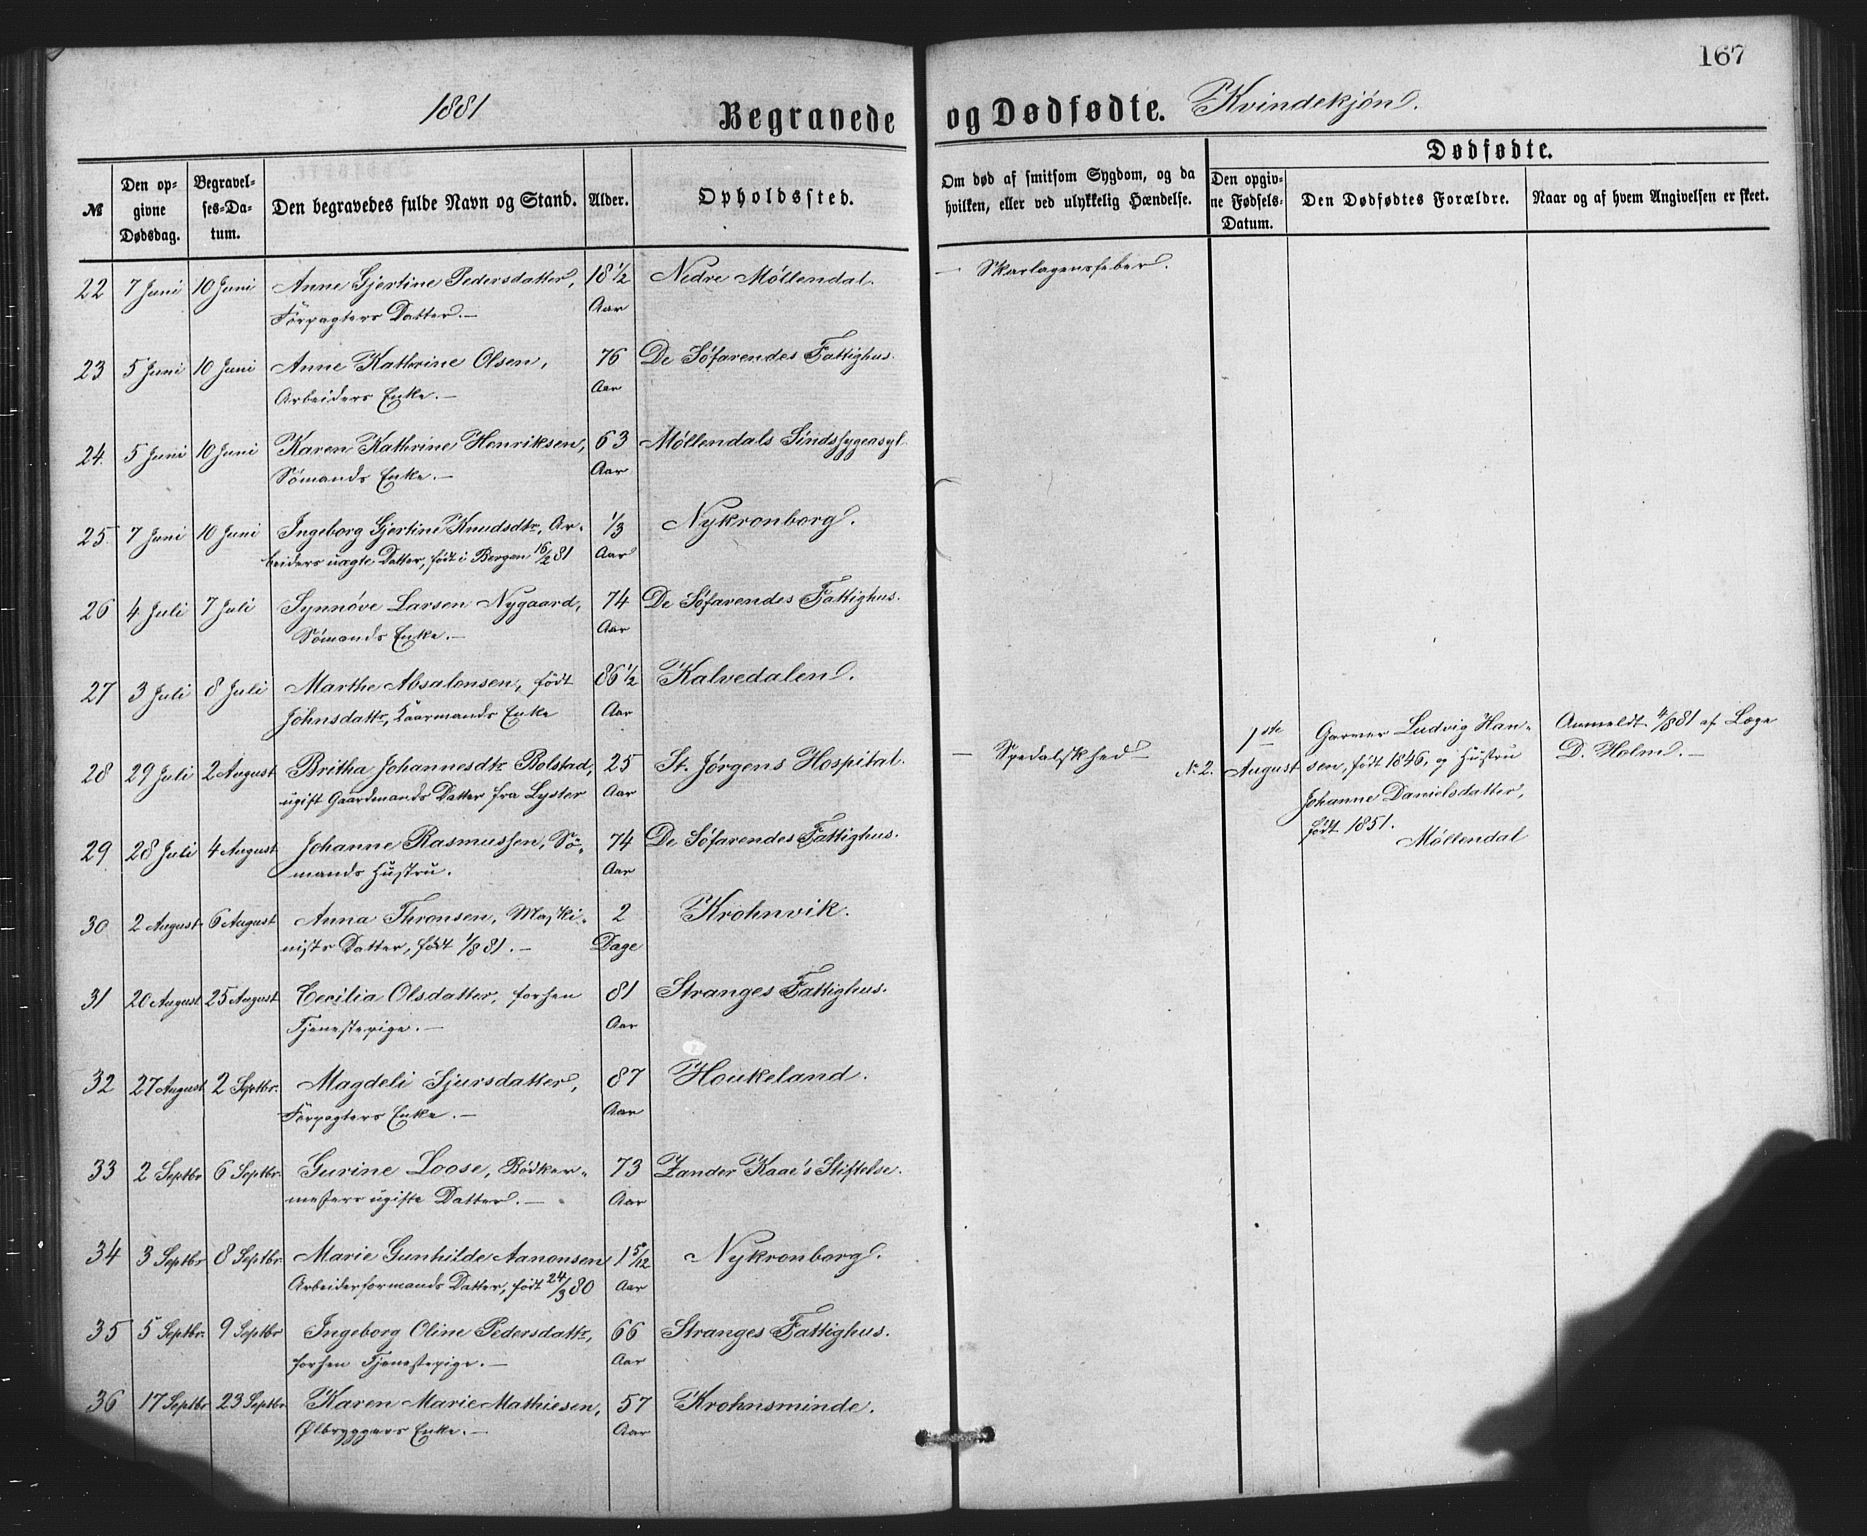 167
1881
Begravede og Dødfødte. Kvindekjøn.
№
Den opgivne Dødsdag.
Begravelses-Datum.
Den begravedes fulde Navn og Stand.
Alder.
Opholdssted.
Om død af smitsom Sygdom, og da hvilken, eller ved ulykkelig Hændelse.
Dødfødte.
Den opgivne Fødsels-Datum.
Den Dødfødtes Forældre.
Naar og af hvem Angivelsen er skeet.
22 7 Juni 10 Juni Anne Gjertine Pedersdatter, 18 1/2 Nedre Møllendal. — Skarlagensfeber.
Forpagters Datter. — Aar
23 5 Juni 10 Juni Anne Kathrine Olsen, 76 De Søfarendes Fattighus.
Arbeiders Enke. — Aar
24. 5 Juni 10 Juni Karen Kathrine Henriksen, 63 Møllendals Sindssygeasyl
Sømands Enke. — Aar
25 7 Juni 10 Juni Ingeborg Gjertine Knudsdtr, Ar- 1/3 Nykronborg.
beiders uægte Datter, født i Bergen 16/2 81 Aar
26 4 Juli 7 Juli Synnøve Larsen Nygaard, 74 De Søfarendes Fattighus.
Sømands Enke. — Aar
27 3 Juli 8 Juli Marthe Absalonsen, født 86 1/2 Kalvedalen.
Johnsdattr, Kaarmands Enke Aar
28 29 Juli 2 August Britha Johannesdtr Bolstad, 25 St. Jørgens Hospital. — Spedalskhed —
ugift Gaardmands Datter fra Lyster Aar
№ 2. 1ste August
Garver Ludvig Han-
sen, født 1846, og Hustru
Johanne Danielsdatter,
født 1851.
Møllendal
Anmeldt 4/8 81 af Læge
D. Holm. —
29 28 Juli 4 August Johanne Rasmussen, Sø- 74 De Søfarendes Fattighus.
mands Hustru. Aar
30 2 August 6 August Anna Thronsen, Maski- 2 Krohnvik.
nists Datter, født 1/8 81. — Dage
31 20 August 25 August Cecilia Olsdatter, forhen 81 Stranges Fattighus.
Tjenestepige. — Aar
32 27 August 2 Septbr. Magdeli Sjursdatter, 87 Houkeland.
Forpagters Enke. — Aar
33 2 Septbr 6 Septbr. Gurine Loose, Bødker- 73 Zander Kaae's Stiftelse.
mesters ugifte Datter. — Aar
34 3 Septbr 8 Septbr. Marie Gunhilde Aanonsen 1 5/12 Nykronborg.
Arbeiderformands Datter, født 24/3 80 Aar
35 5 Septbr. 9 Septbr Ingeborg Oline Pedersdattr, 66 Stranges Fattighus.
forhen Tjenestepige. — Aar
36 17 Septbr 23 Septbr. Karen Marie Mathiesen, 57 Krohnsminde.
Ølbryggers Enke. — Aar